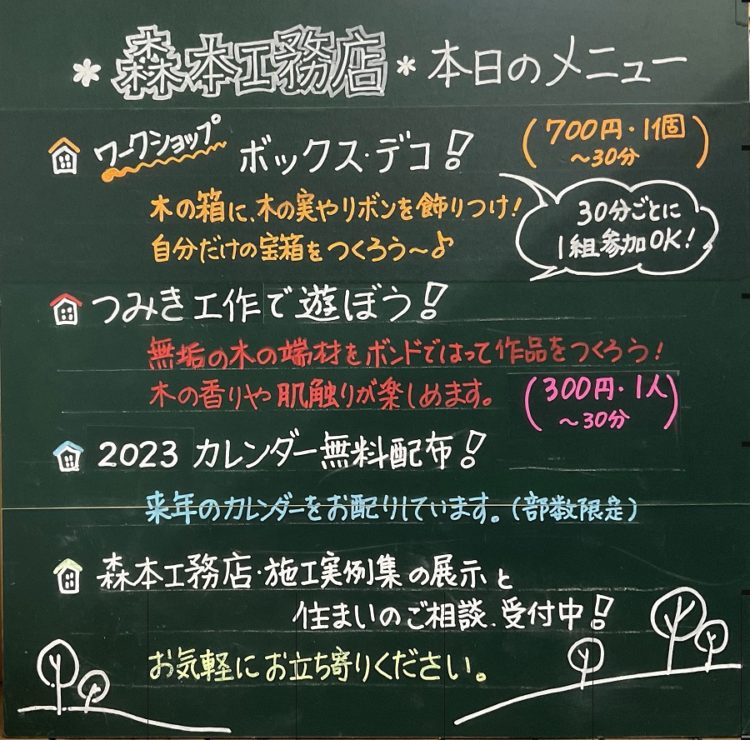 *森本工務店*本日のメニュー
ワークショップ ボックス・デコ! (700円・1個 ~30分)
木の箱に、木の実やリボンを飾りつけ!
自分だけの宝箱をつくろう~♪
30分ごとに
1組参加OK!
つみき工作で遊ぼう!
無垢の木の端材をボンドではって作品をつくろう!
木の香りや肌触りが楽しめます。
(300円・1人
~30分)
2023 カレンダー無料配布!
来年のカレンダーをお配りしています。(部数限定)
森本工務店・施工実例集の展示と
住まいのご相談、受付中!
お気軽にお立ち寄りください。